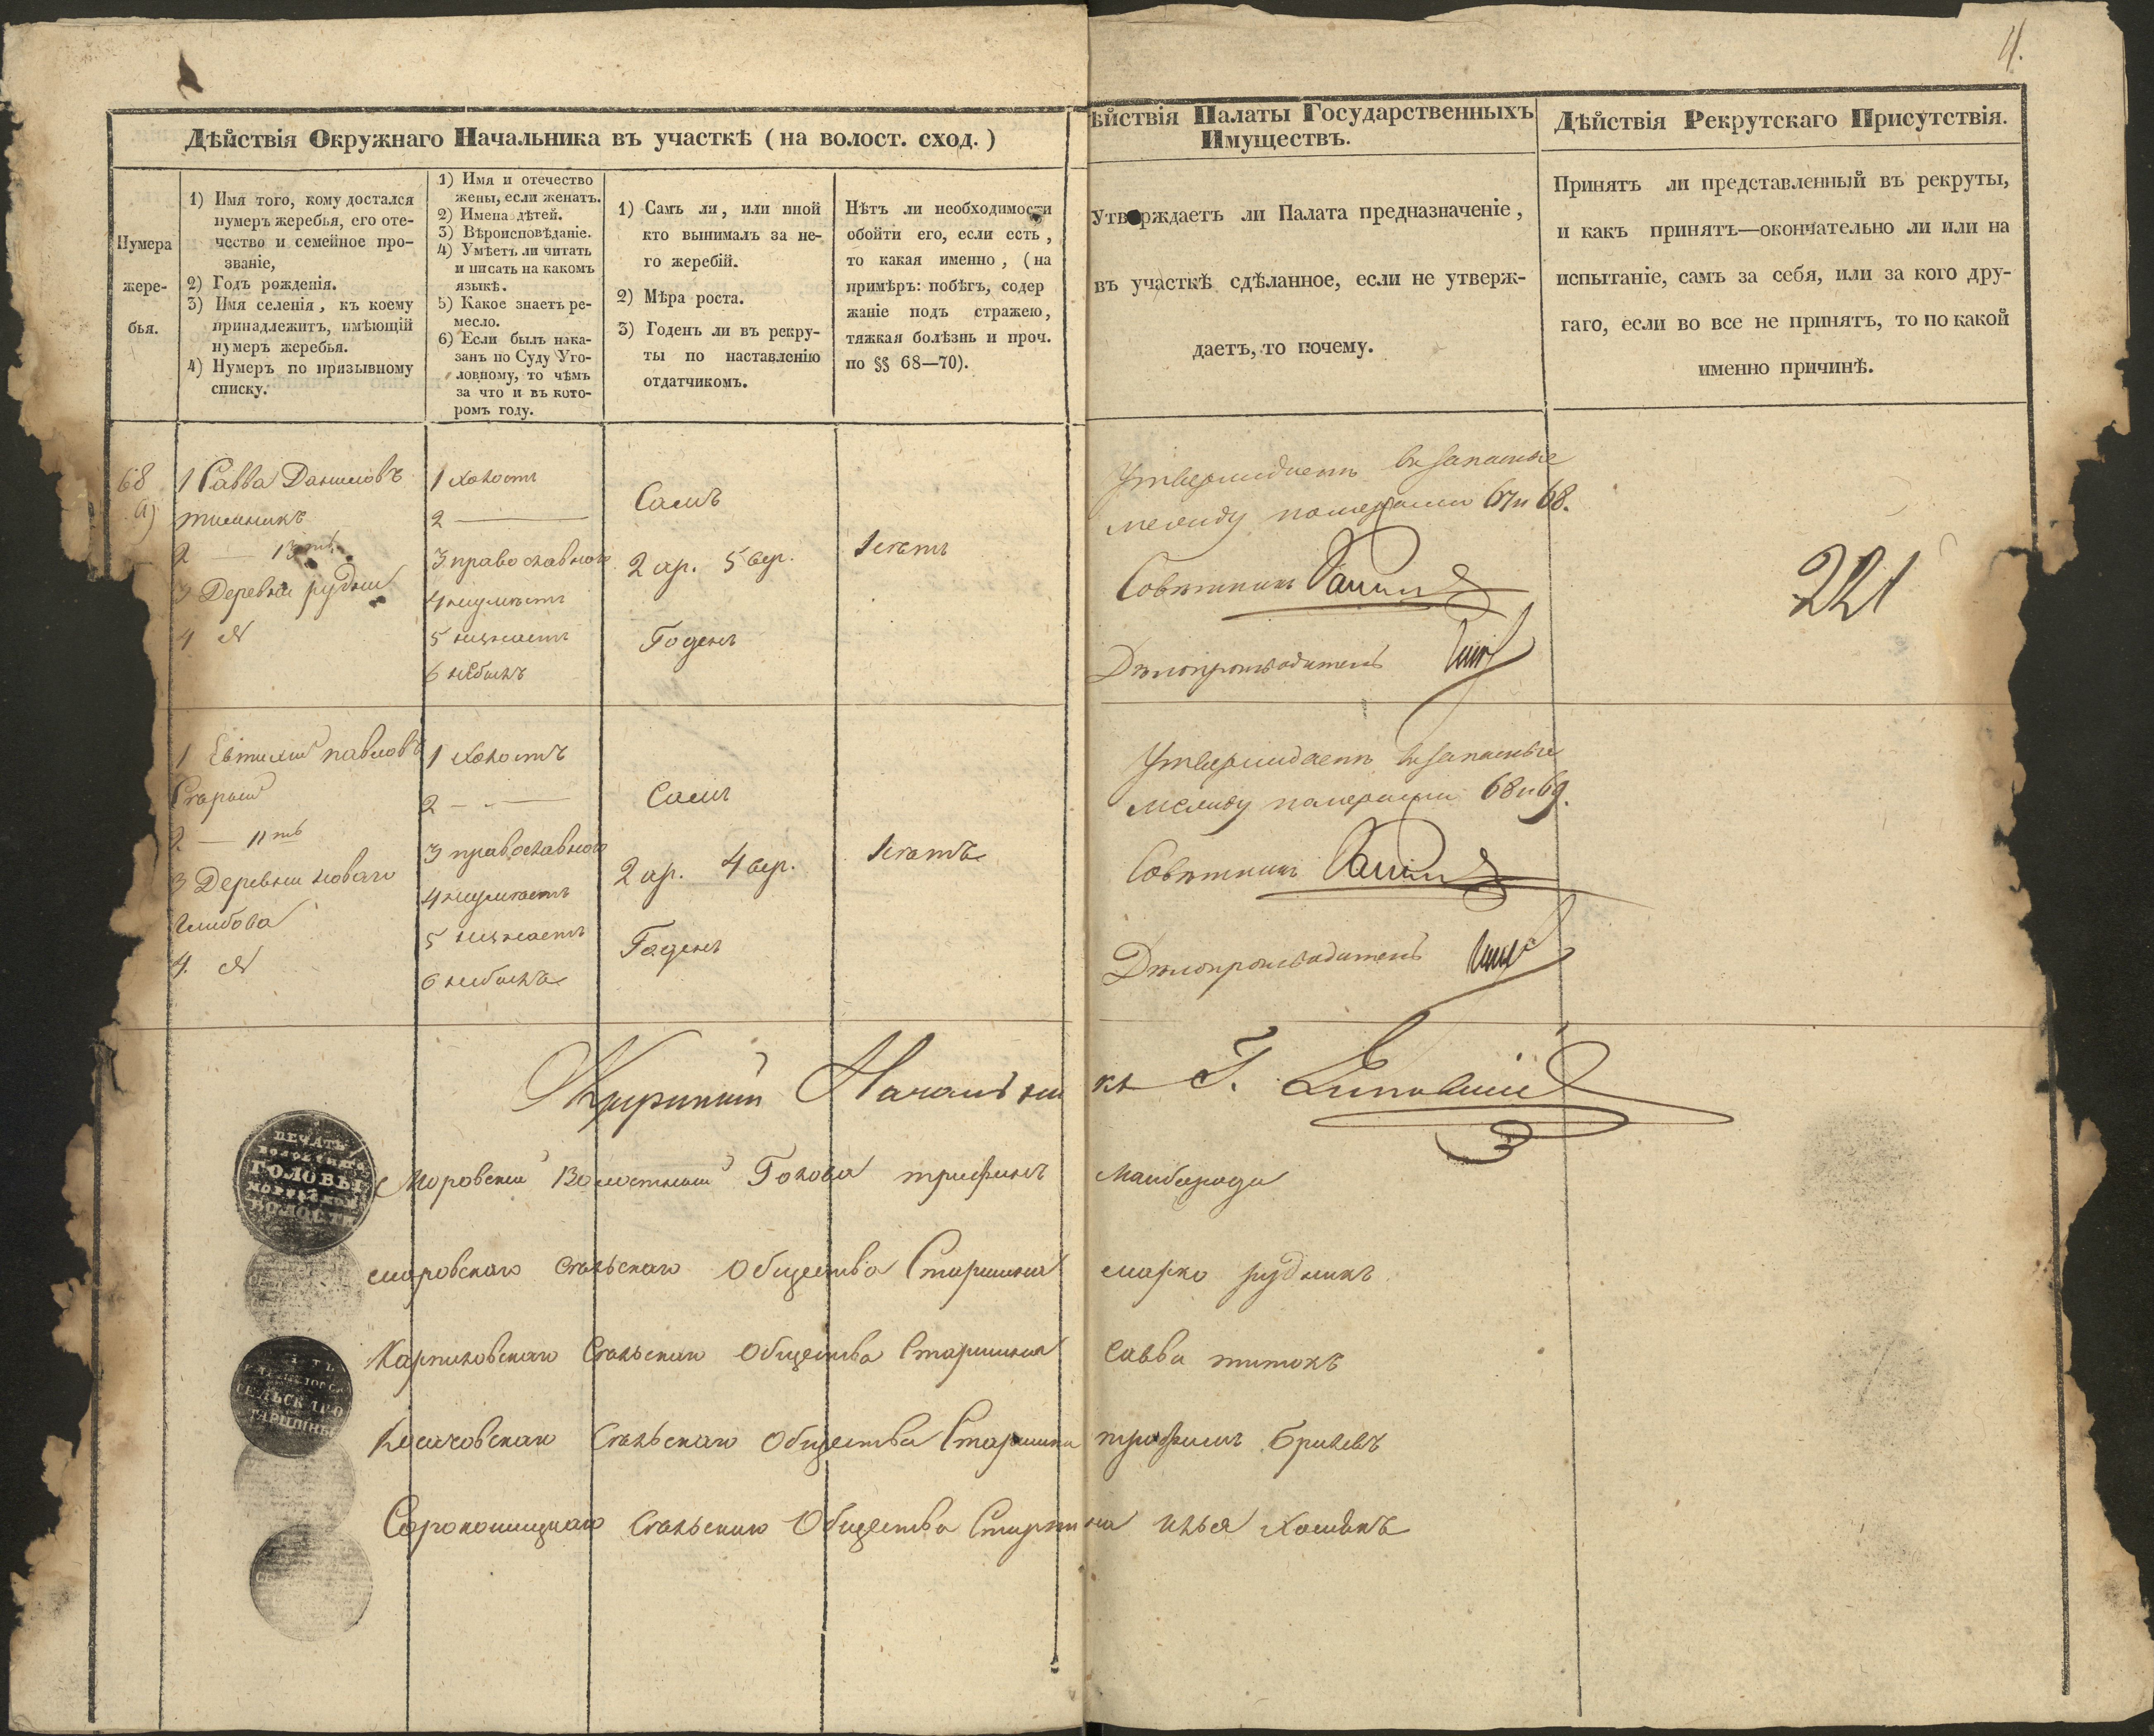 4.
Дѣйствія Окружнаго Начальника въ участкѣ (на волост. сход.)
Нумера
жере-
бья.
1) Имя того, кому достался
нумеръ жеребья, его оте-
чество и семейное про-
званіе,
2) Годъ рожденія.
3) Имя селенія, къ коему
принадлежитъ, имѣющій
нумеръ жеребья.
4) Нумеръ по призывному
списку.
1) Имя и отечество
жены, если женатъ.
2) Имена дѣтей.
3) Вѣроисповѣданіе.
4) Умѣетъ ли читать
и писать на какомъ
языкѣ.
5) Какое знаетъ ре-
месло.
6) Если былъ нака-
занъ по Суду Уго-
ловному, то чѣмъ
за что и въ кото-
ромъ году.
1) Самъ ли, или иной
кто вынималъ за не-
го жеребій.
2) Мѣра роста.
3) Годенъ ли въ рекру-
ты по наставленію
отдатчикомъ.
Нѣтъ ли необходимости
обойти его, если есть,
то какая именно, (на
примѣръ: побѣгъ, содер
жаніе подъ стражею,
тяжкая болѣзнь и проч.
по §§ 68—70).
ѣйствія Палаты Государственныхъ
Имуществъ.
Утверждаетъ ли Палата предназначеніе,
въ участкѣ сдѣланное, если не утверж-
даетъ, то почему.
Дѣйствія Рекрутскаго Присутствія.
Принятъ ли представленный въ рекруты,
и какъ принятъ—окончательно ли или на
испытаніе, самъ за себя, или за кого дру-
гаго, если во все не принятъ, то по какой
именно причинѣ.
68
а)
1 Савва Даниловъ
2 — 13
3 Деревни рудни
4
1 холостъ
2 —
3 православной
4 неумѣетъ
5 незнаетъ
6 небылъ
Самъ
2 ар. 5 вер.
Годенъ
Утверждаетъ въ запасные
между номерами 67 и 68.
Совѣтникъ
Дѣлопроизводитель
221
1 Евтихий павловъ
Старый
2 — 11тъ
3 Деревни новаго
глибова
4
1 холостъ
2 —
3 православной
4 неумѣетъ
5 незнаетъ
6 небылъ
Самъ
2 ар. 4 вер.
Годенъ
Утверждаетъ въ запасные
между номерами 68 и 69.
Совѣтникъ
Дѣлопроизводитель
Окружный Начальникъ Г.
ПЕЧАТЬ
ГОЛОВЫ
ВОЛОСТИ
Моровский Волостный Голова трифонъ Манборода
моровскаго Сельскаго Общества Старшина марко рудникъ
Карпиловскаго Сельскаго Общества Старшина Савва титокъ
СЕЛЬСКАГО
СТАРШИНЫ
Косачовскаго Сельскаго Общества Старшина трофимъ
Сорокошицкаго Сельскаго Общества Старшина илья